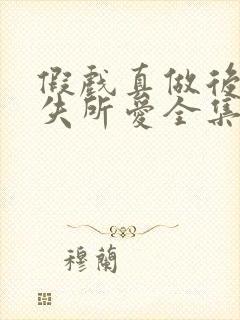 假戲真做後
失所愛全集
穆蘭